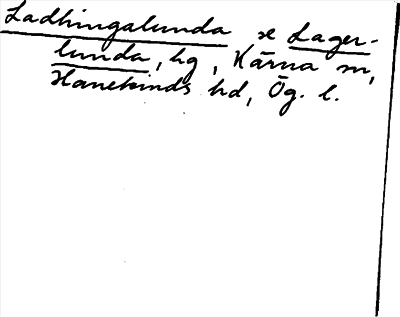 Ladhingalunda se Lager-
lunda, hg, Kärna sn,
Hanekinds hd, Ög. l.